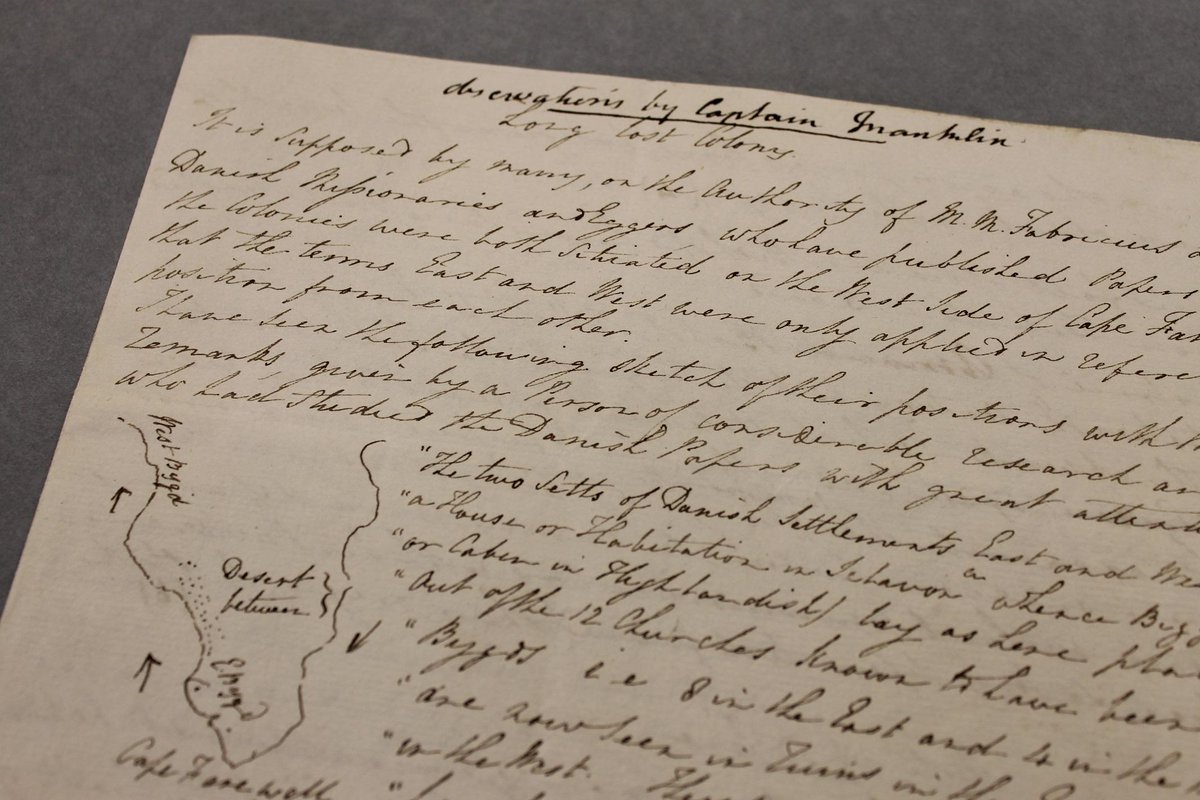 observations by Captain Franklin
Long lost Colony.
It is supposed by many, on the Authority of M. M. Fabricius
Danish Missionaries and Eggers who have published Papers
the Colonies were both Situated on the West Side of Cape Far
that the terms East and West were only applied in refere
position from each other.
I have seen the following Sketch of their positions with
remarks given by a Person of considerable research an
who had Studied the Danish Papers with great attent
"The two Setts of Danish Settlements East and We
"a House or Habitation in whence Byg
"or Cabin in Highlandish) lay as here pla
"Out of the 12 Churches known to have been
"Bygds i.e 8 in the East and 4 in the
"are now seen in ruins in the
"in the West.
West Bygd
Desert
between
E. Bygd
Cape Farewell